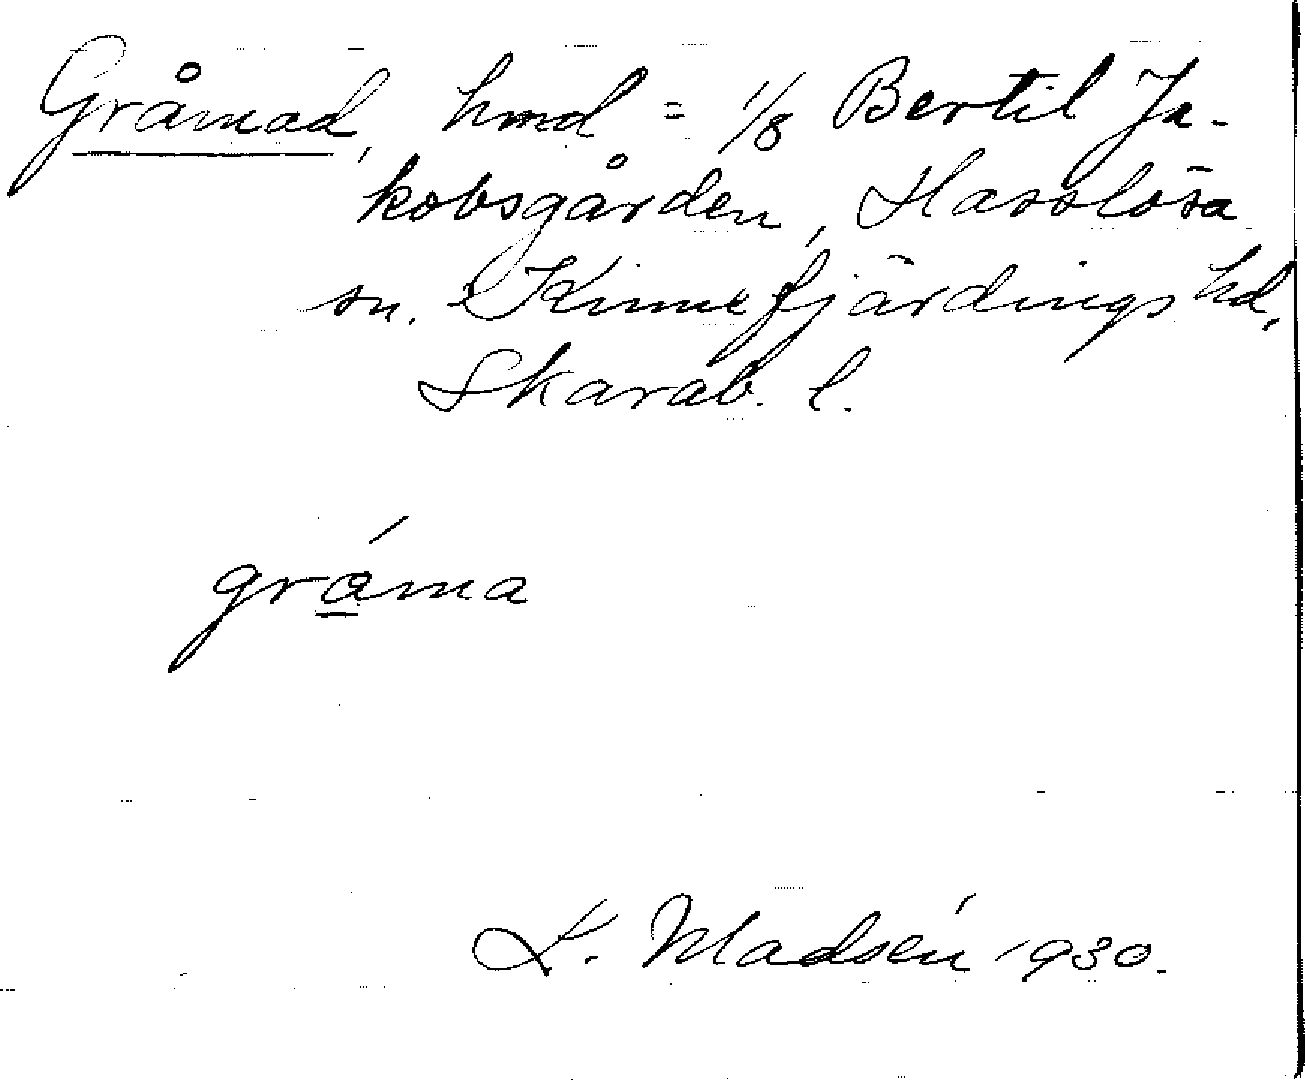 Gråmad, hmd = 1/8 Bertil Ja-
kobsgården, Hasslösa
sn. Kinnefjärdings hd,
Skarab. l.
gráma
K. Madsén 1930.